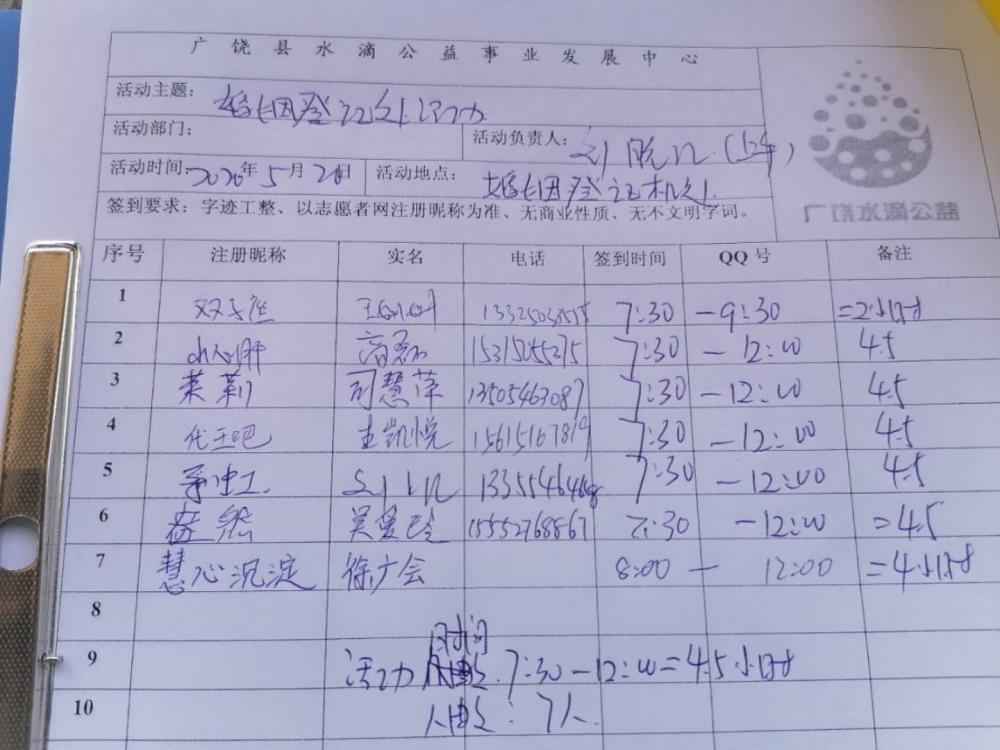 广饶县水滴公益事业发展中心
活动主题: 婚姻登记处活动
活动部门: 活动负责人:
活动时间: 2020年5月20日 活动地点: 婚姻登记机处
广饶水滴公益
签到要求: 字迹工整、以志愿者网注册昵称为准、无商业性质、无不文明字词。
序号 注册昵称 实名 电话 签到时间 QQ 号 备注
1 双子座 7:30 -9:30 =2小时
2 15315055275 7:30 -12:00 4.5
3 茉莉 司慧萍 13505463087 7:30 -12:00 4.5
4 凯悦 15615167819 7:30 -12:00 4.5
5 7:30 -12:00 4.5
6 吴爱玲 15552768867 7:30 -12:00 =4.5
7 慧心沉淀 徐广会 8:00 - 12:00 =4小时
8 时间
9 活动 7:30-12:00=4.5小时
10 人数: 7人.